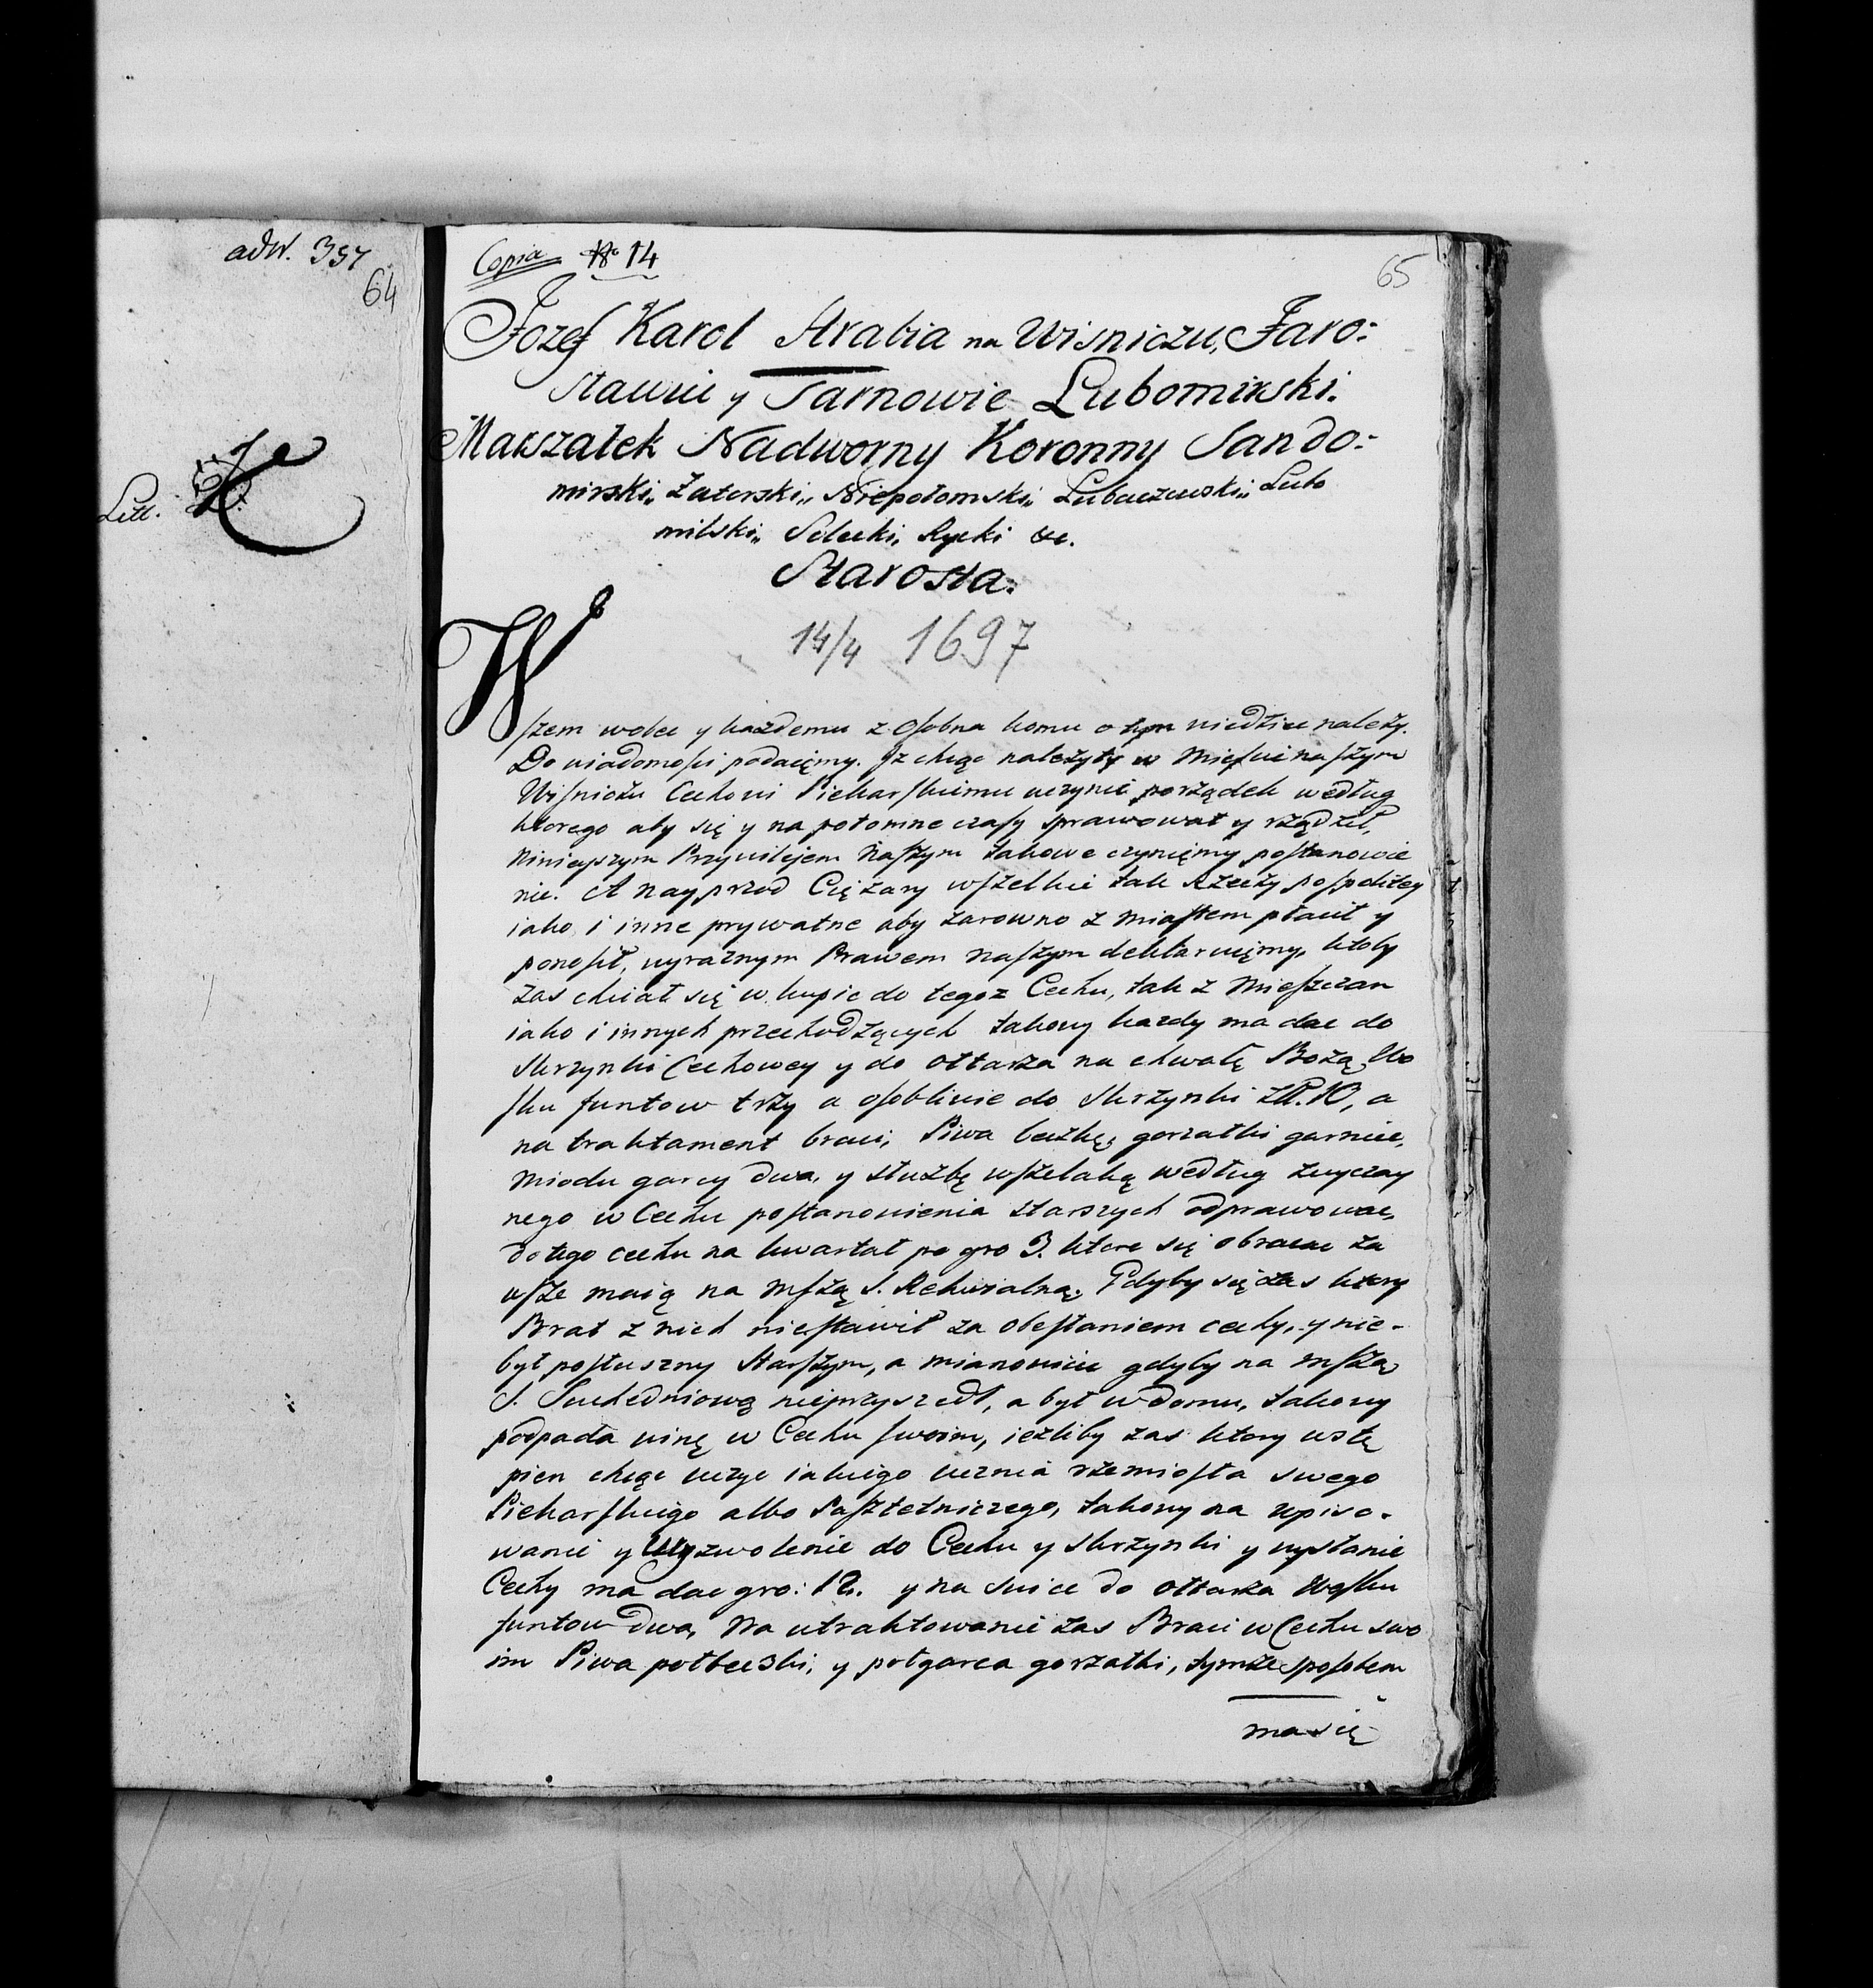 adW. 357
64
Litt.
Copia N° 14
65
Jozef Karol Hrabia na Wisniczu, Jaro:
sławiu y Tarnowie Lubomirski.
Marszałek Nadworny Koronny Sando:
mirski,, Zatorski,, Niepołomski,, Lubaczewski,, Lubo
milski,, Solecki, Rycki &c.
Starosta:
14/4 1697
Wszem wobec y każdemu z Osobna komu o tym wiedziec należy.
Do wiadomości podaięmy. Jż chcąc należyty w Mieście naszym
Wiśniczu Cechowi Piekarskiemu uczynic porządek według
ktorego aby się y na potomne czasy sprawował y rządził,
Ninieyszym Przywilejem Naszym takowe czynięmy postanowie
nie. A nayprzod Ciężary wszelkie tak Rzeczy pospolitey
iako i inne prywatne aby zarowno z Miastem płacił y
ponosił, wyraznym Prawem Naszym deklaruięmy, ktoby
zas chciał się wkupic do tegoz Cechu, tak z Mieszczan
iako i innych przechodzących takowy kazdy ma dac do
Skrzynki Cechowey y do ołtarza na chwałę Bożą Wo
sku funtow trzy a osobliwie do Skrzynki zł. 10, a
na traktament braci, Piwa beczkę, gorzałki garniec,
Miodu garcy dwa, y służbę wszelaką według zwyczay
nego w Cechu postanowienia starszych odprawowac,
do tego cechu na kwartał po gro 3. ktore się obracac za
wsze maią na Mszą S. Rekwialną. Gdyby się zas ktory
Brat z nich niestawił za obesłaniem cechy, y nie-
był posłuszny Starszym, a mianowicie gdyby na Mszą
S. Suchedniową nieprzyszedł, a był w domu, takowy
podpada winę w Cechu swoim, ieżliby zas ktory wstę
pien chcąc uczyc iakiego ucznia rzemiosła swego
Piekarskiego albo Pasztetniczego, takowy na zpiso-
wanie y Wyzwolenie do Cechu y Skrzynki y wysłanie
Cechy ma dac gro: 12. y na swice do ołtarza Wosku
funtow dwa, Na utraktowanie zas Braci w Cechu swo
im Piwa połbeczki, y połgarca gorzałki, tymze sposobem
ma się